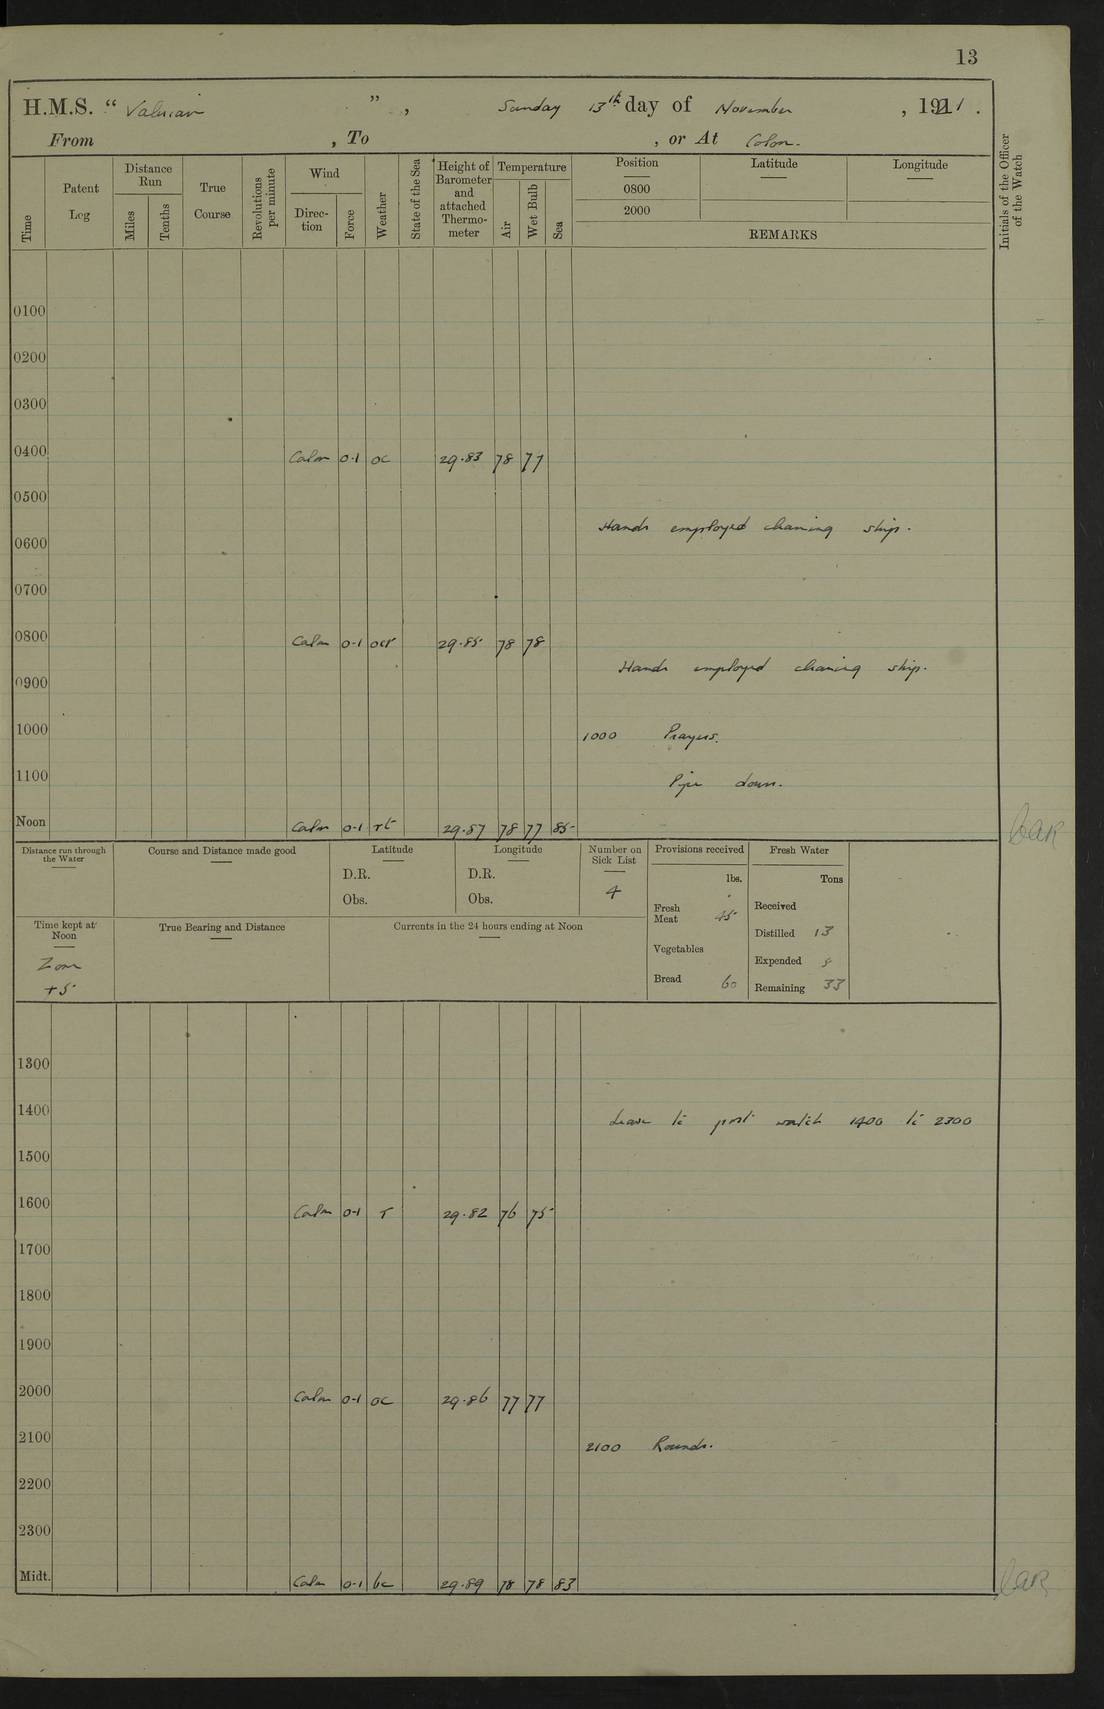 13
H.M.S. “ Valerian ” , Sunday 13th day of November , 1921 .
From , To , or At Colon.
Time
Patent Log
Distance Run
Miles
Tenths
True Course
Revolutions per minute
Wind
Direction
Force
Weather
State of the Sea
Height of Barometer and attached Thermometer
Temperature
Air
Wet Bulb
Sea
Position Latitude Longitude
0800
2000
REMARKS
Initials of the Officer of the Watch
0100
0200
0300
0400 Calm 0-1 oc 29.83 78 77
0500
Hands employed cleaning ship.
0600
0700
0800 Calm 0-1 ocr 29.85 78 78
Hands employed cleaning ship.
0900
1000 1000 Prayers.
1100 Pipe down.
Noon Calm 0-1 rt 29.87 78 77 85
Distance run through the Water
Course and Distance made good
Latitude
D.R.
Obs.
Longitude
D.R.
Obs.
Number on Sick List
4
Provisions received
lbs.
Fresh Meat 45
Vegetables
Bread 60
Fresh Water
Tons
Received
Distilled 13
Expended 8
Remaining 33
Time kept at Noon
Zone
+5
True Bearing and Distance
Currents in the 24 hours ending at Noon
1300
1400 Leave to port watch 1400 to 2300
1500
1600 Calm 0-1 r 29.82 76 75
1700
1800
1900
2000 Calm 0-1 oc 29.86 77 77
2100 2100 Rounds.
2200
2300
Midt. Calm 0-1 bc 29.89 78 78 83